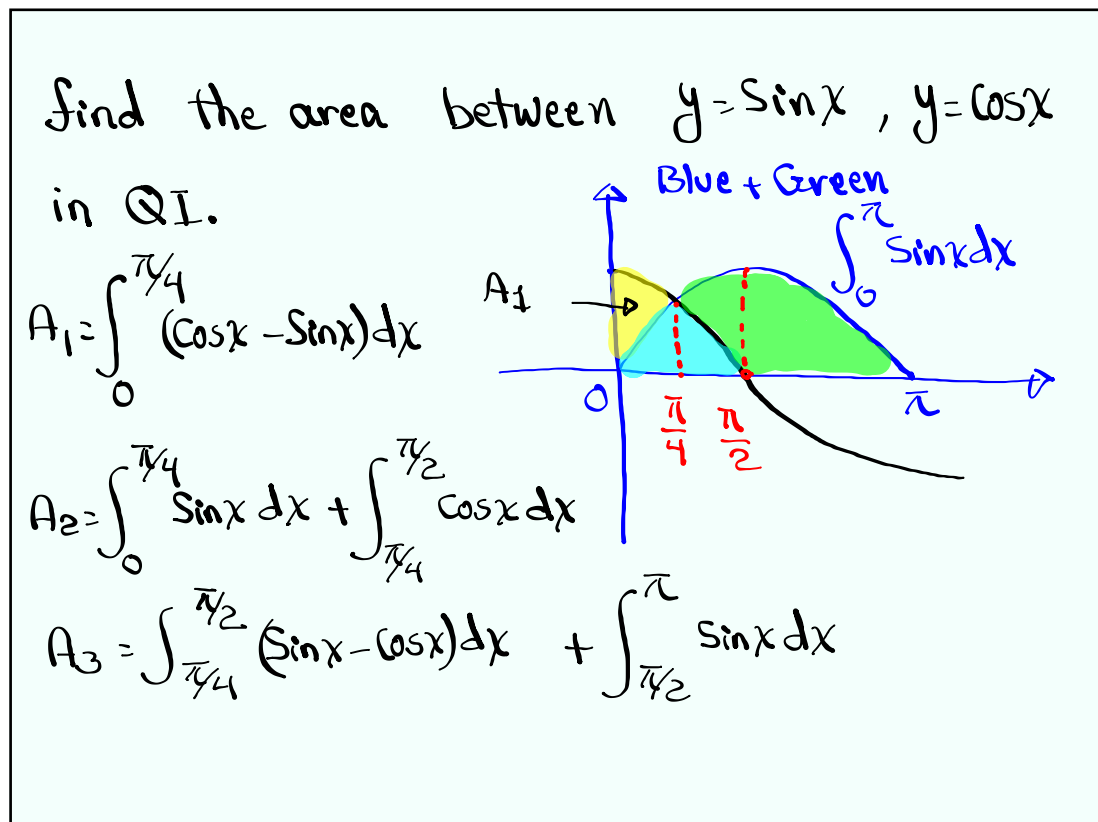 find the area between y=Sinx , y=Cosx
in QI.
Blue + Green
∫₀^π Sinx dx
A₁ = ∫₀^{π/4} (Cosx - Sinx) dx
A1
0
π/4
π/2
π
A₂ = ∫₀^{π/4} Sinx dx + ∫_{π/4}^{π/2} Cosx dx
A₃ = ∫_{π/4}^{π/2} (Sinx - Cosx) dx + ∫_{π/2}^{π} Sinx dx